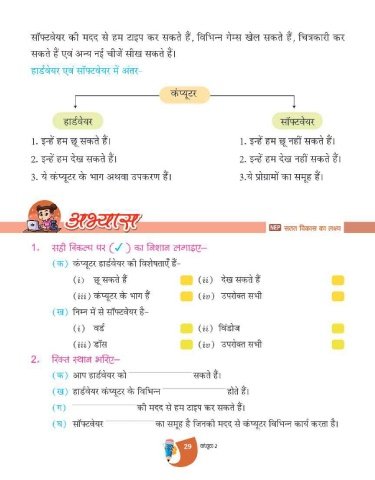 सॉफ्टवेयर की मदद से हम टाइप कर सकते हैं, विभिन्न गेम्स खेल सकते हैं, चित्रकारी कर
सकते हैं एवं अन्य नई चीजें सीख सकते हैं।
हार्डवेयर एवं सॉफ्टवेयर में अंतर-
कंप्यूटर
हार्डवेयर सॉफ्टवेयर
1. इन्हें हम छू सकते हैं। 1. इन्हें हम छू नहीं सकते हैं।
2. इन्हें हम देख सकते हैं। 2. इन्हें हम देख नहीं सकते हैं।
3. ये कंप्यूटर के भाग अथवा उपकरण हैं। 3.ये प्रोग्रामों का समूह हैं।
अभ्यास NEP सतत विकास का लक्ष्य
1. सही विकल्प पर (✓) का निशान लगाइए–
(क) कंप्यूटर हार्डवेयर की विशेषताएँ हैं-
(i) छू सकते हैं (ii) देख सकते हैं
(iii) कंप्यूटर के भाग हैं (iv) उपरोक्त सभी
(ख) निम्न में से सॉफ्टवेयर है-
(i) वर्ड (ii) विंडोज
(iii) डॉस (iv) उपरोक्त सभी
2. रिक्त स्थान भरिए–
(क) आप हार्डवेयर को सकते हैं।
(ख) हार्डवेयर कंप्यूटर के विभिन्न होते हैं।
(ग) की मदद से हम टाइप कर सकते हैं।
(घ) सॉफ्टवेयर का समूह है जिनकी मदद से कंप्यूटर विभिन्न कार्य करता है।
29 कंप्यूटर-2